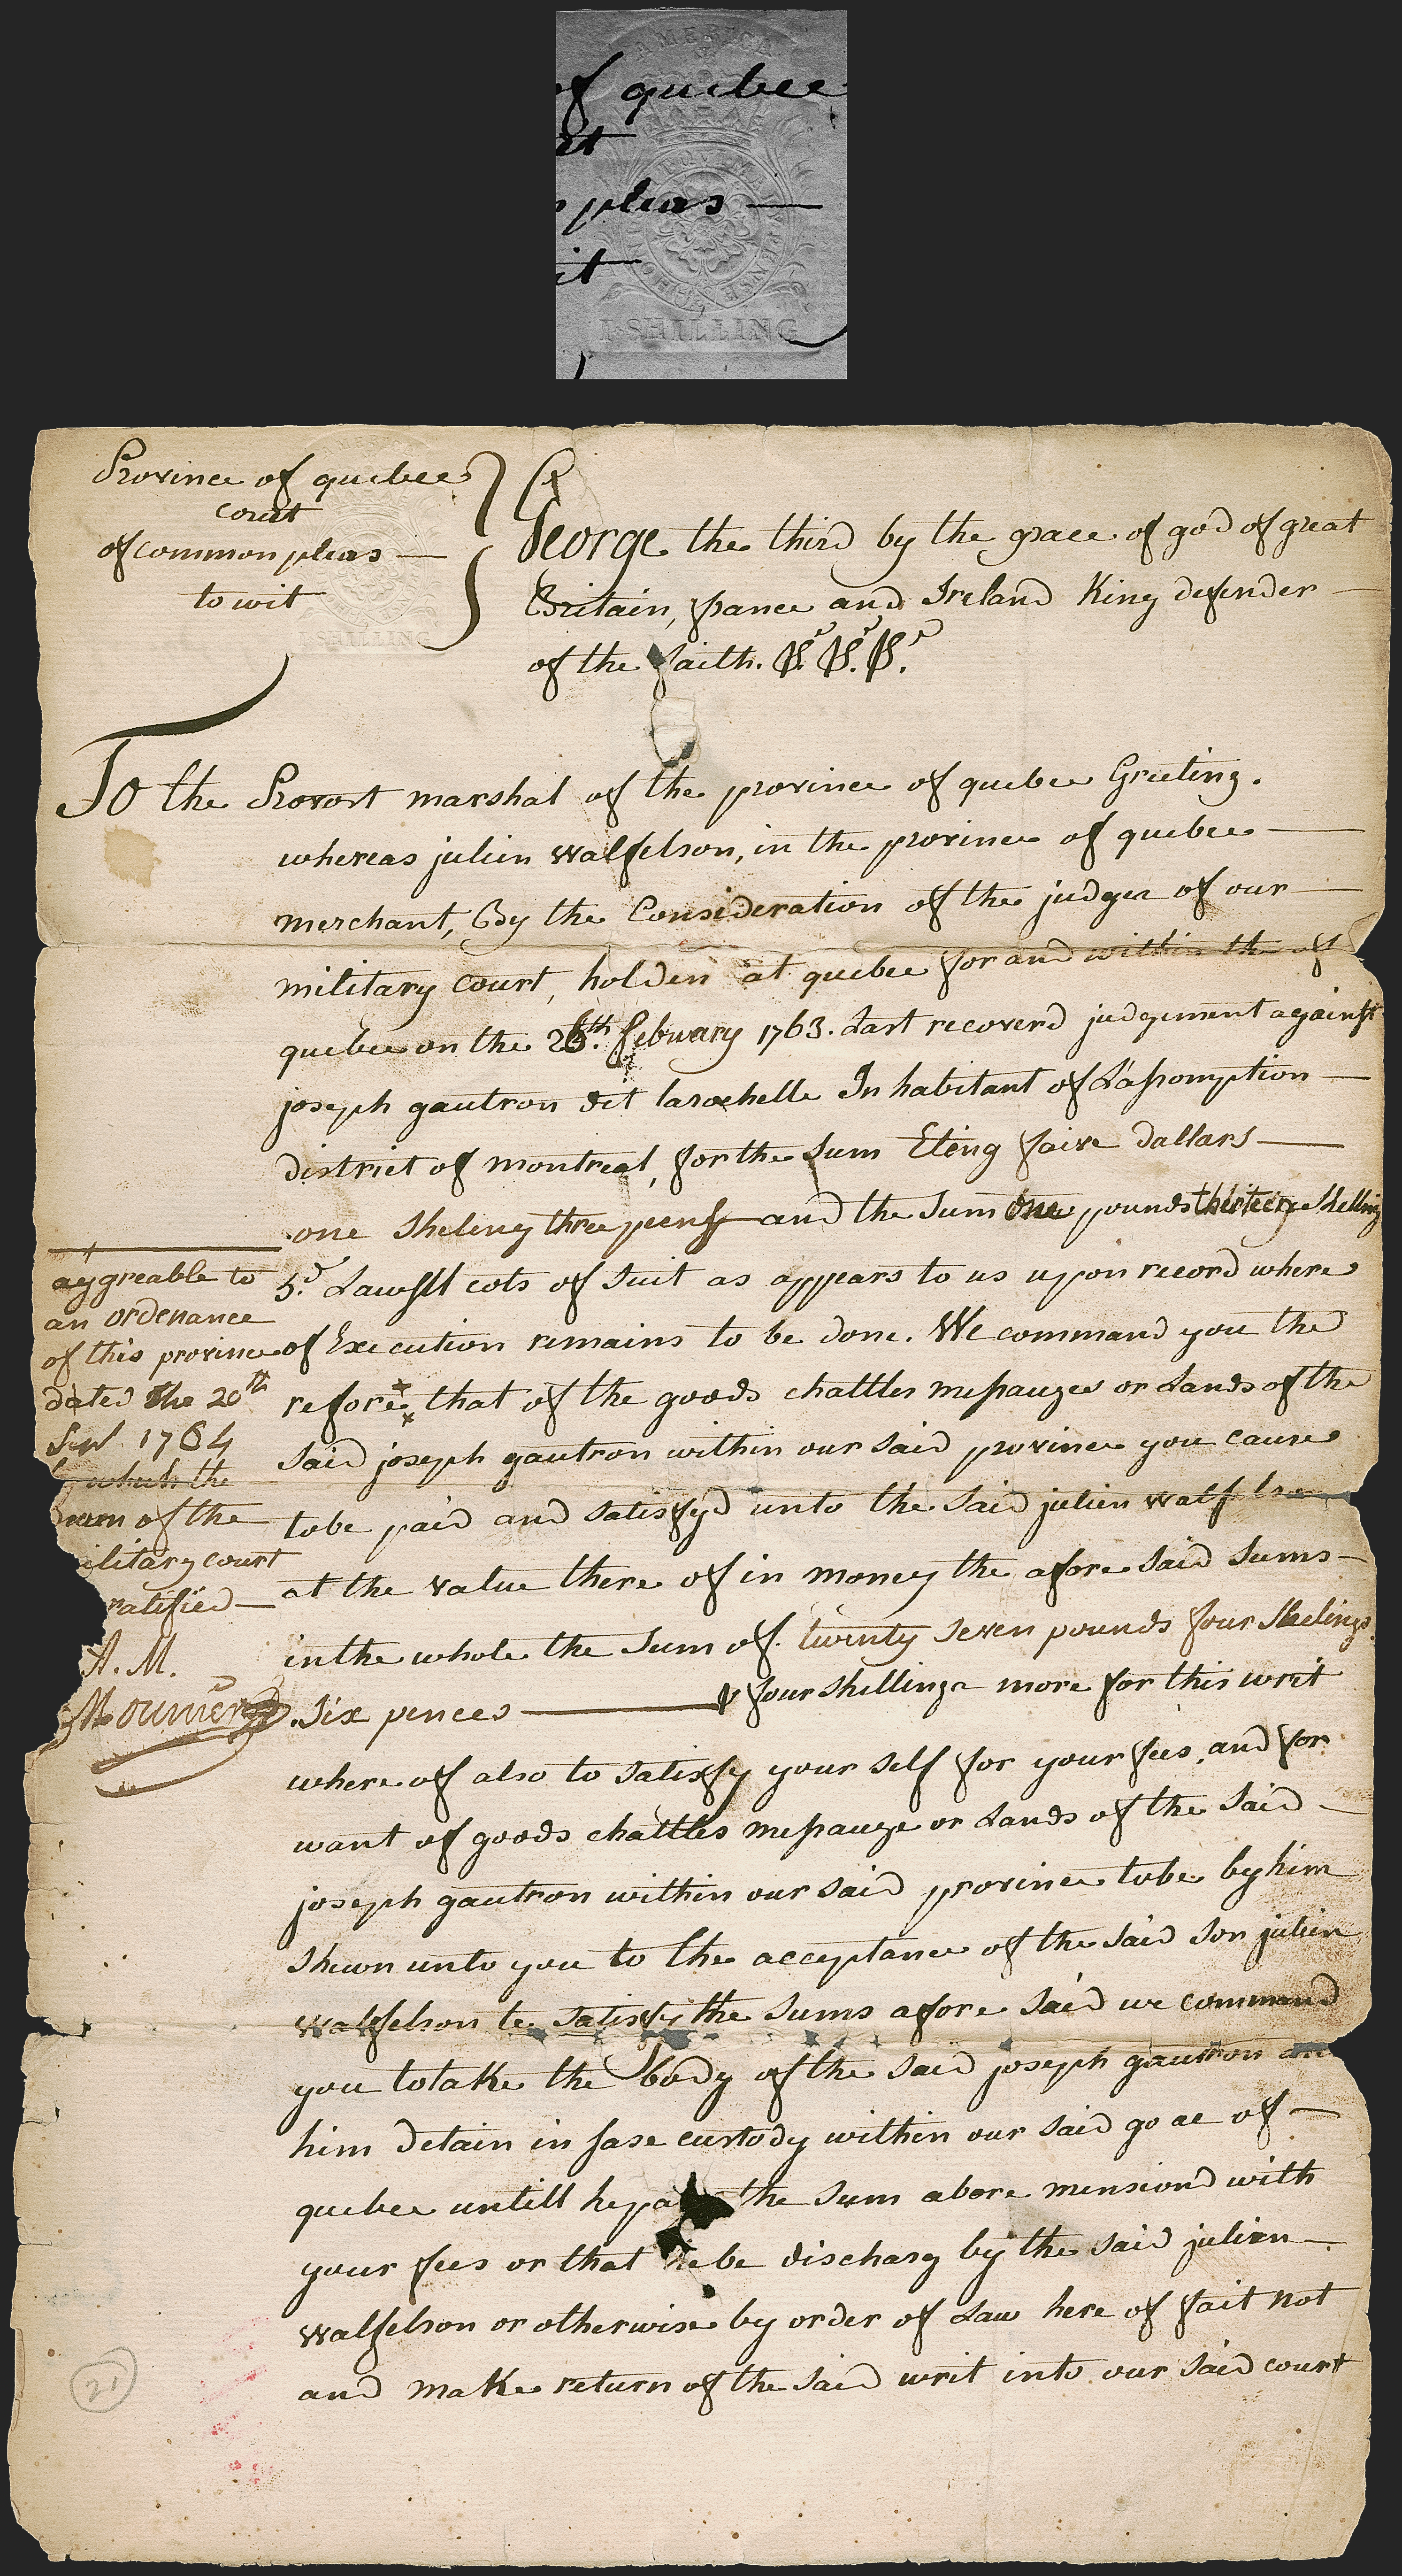 AMERICA
of quebec
rt
pleas —
it
I·SHILLING
Province of quebec
court
of common pleas —
to wit
I SHILLING
George the third by the grace of god of great
Britain, france and Ireland King defender —
of the faith.
To the Provost marshal of the province of quebec Greeting.
whereas julien walfelson, in the province of quebec —
merchant, By the Consideration of the judges of our —
military court, holden at quebec for and within the of
quebec on the 26th. february 1763. Last recoverd judgement against
joseph gautron dit larochelle Inhabitant of L'assomption —
district of montreal, for the sum Eteng faive dallars —
one sheleng three peens and the sum One pounds thirteen Shelling
5.d Lawfll cots of suit as appears to us upon record where
of Execution remains to be done. We command you the
refore that of the goods chattles messauges or Lands of the
said joseph gautron within our said province you cause
tobe paid and satisfyd unto the said julien walf
at the value there of in money the afore said sums —
in the whole the sum of. twenty seven pounds four Shelings.
.six pences — & four shillings more for this writ
where of also to satisfy your self for your fees, and for
want of goods chattles messauge or Lands of the said —
joseph gautron within our said province tobe by him
shewn unto you to the acceptance of the said son julien
walfelson te satisfy the sums afore said we command
you totake the body of the said joseph gautron an
him detain in sase custody within our said goae of —
quebec untill he pa the sum above mensiond with
your fees or that he be discharg by the said julien —
walfelson or otherwise by order of Law here of fait not
and make return of the said writ into our said court
aygreable to
an ordenance
of this province
dated the 20th
Sep 1764
which the
of the
ilitary court
ratified —
A. M.
Mounier
21